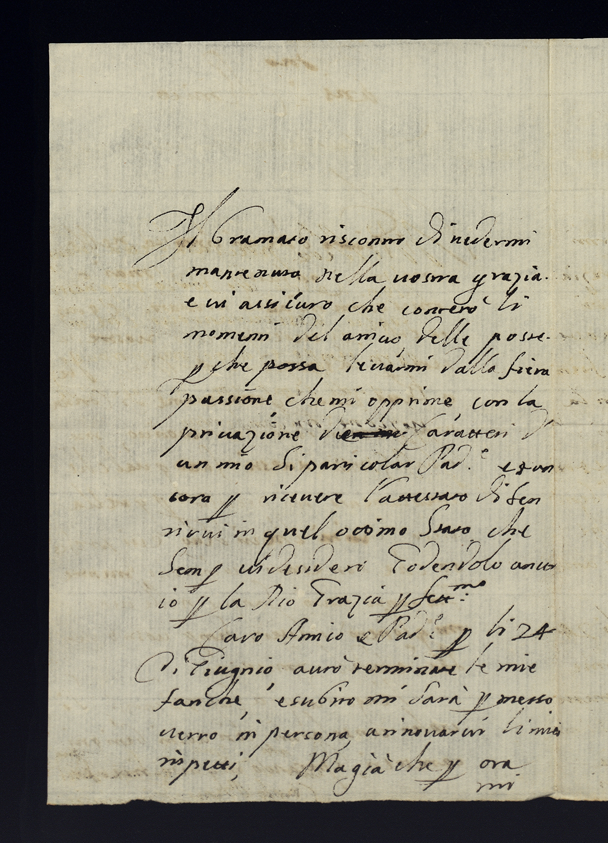 Il bramato riscontro di vedermi
mantenuto nella vostra grazia
e vi assicuro che conterò li
momenti del arrivo delle poste
p che possa levarmi dalla fiera
passione che mi opprime con la
privazione Caratteri d
un mio Si particolar Pad.e
p ricevere l'attestato di sen
tirvi in quel ottimo Stato che
Semp vi desideri Godendolo anch
io p la Dio Grazia p fett.mo
Caro Amico e Pad.e p li 24
Di Giugnio avrò terminate le mie
fatiche, e subito mi darà p messo
verro in persona a rinovarvi li miei
rispetti, Ma già che p ora
mi